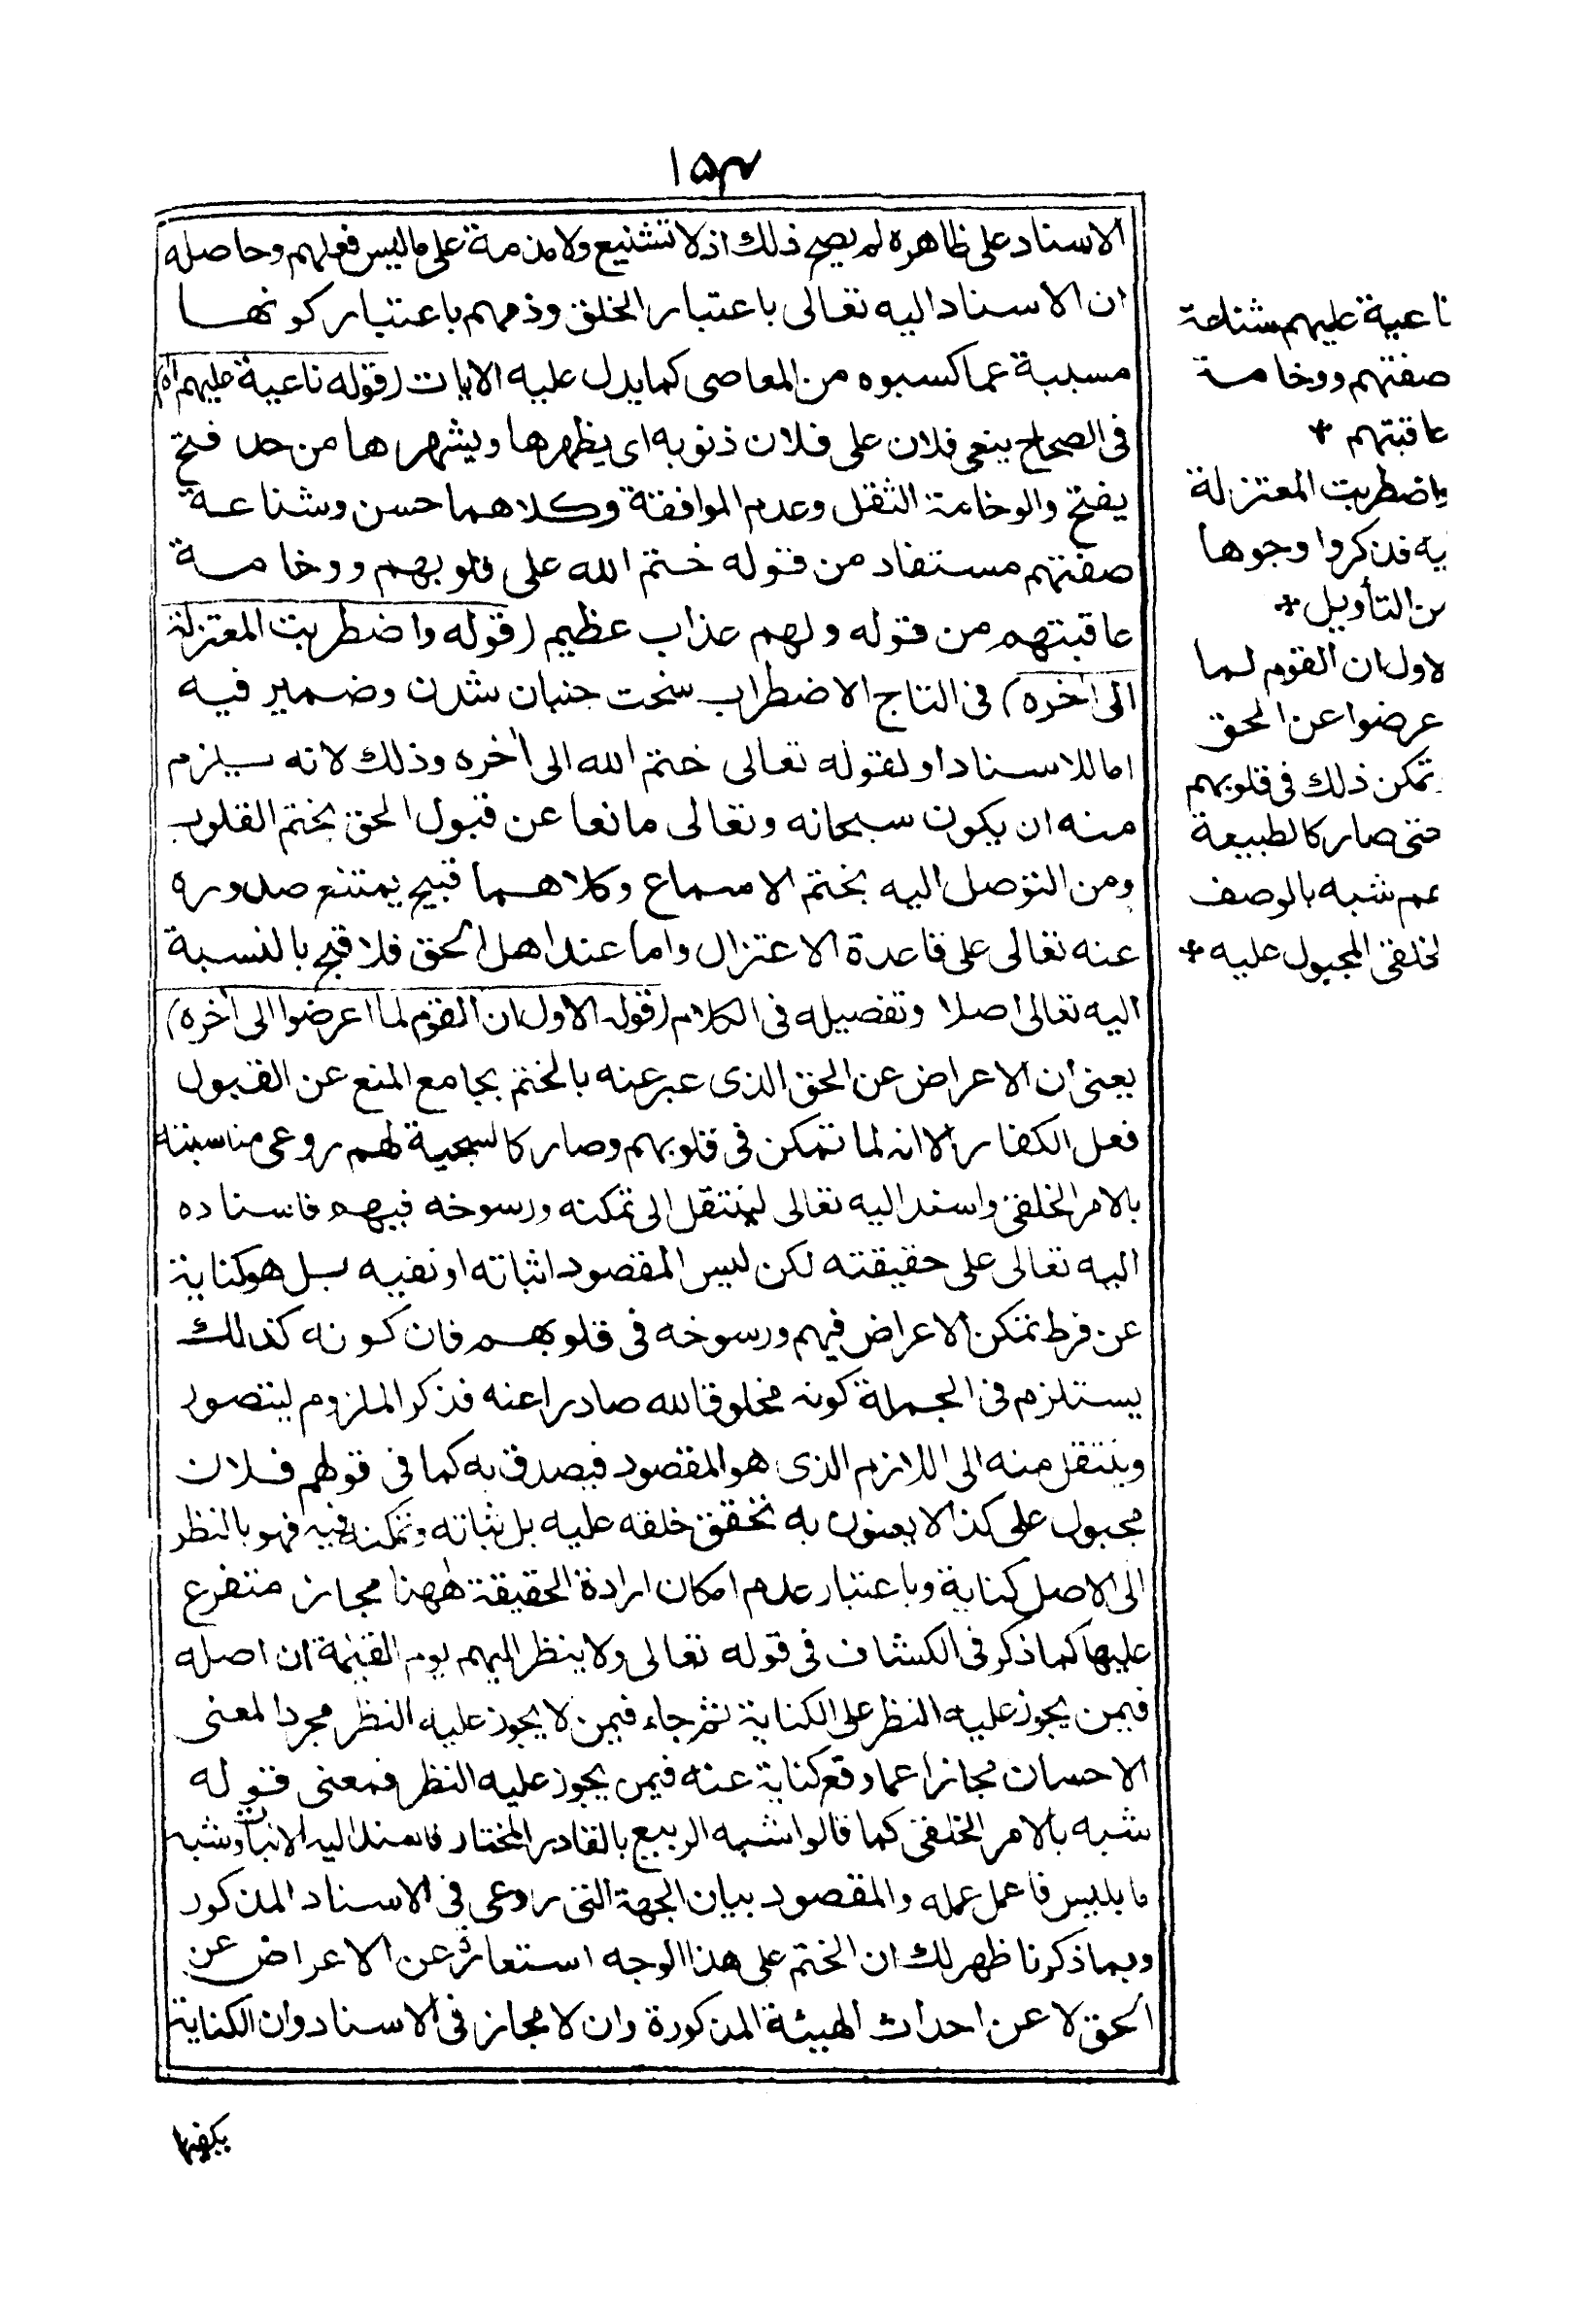 ١٥٣
الاسناد على ظاهره لم يصح ذلك اذ لا تشنيع ولا مذمة على ما ليس فعلهم وحاصله
ان الاسناد اليه تعالى باعتبار الخلق وذمهم باعتبار كونها
مسببة عما كسبوه من المعاصى كما يدل عليه الايات (قوله ناعية عليهم اه)
فى الصحاح ينعى فلان على فلان ذنوبه اى يظهرها ويشهرها من حد فتح
يفتح والوخامة الثقل وعدم الموافقة وكلاهما حسن وشناعة
صفتهم مستفاد من قوله ختم الله على قلوبهم ووخامة
عاقبتهم من قوله ولهم عذاب عظيم (قوله واضطربت المعتزلة
الى آخره) فى التاج الاضطراب سخت جنبان شدن وضمير فيه
اما للاسناد او لقوله تعالى ختم الله الى آخره وذلك لانه سيلزم
منه ان يكون سبحانه وتعالى مانعا عن قبول الحق بختم القلوب
ومن التوصل اليه بختم الاسماع وكلاهما قبيح يمتنع صدوره
عنه تعالى على قاعدة الاعتزال واما عند اهل الحق فلا قبح بالنسبة
اليه تعالى اصلا وتفصيله فى الكلام (قوله الاول ان القوم لما اعرضوا الى آخره)
يعنى ان الاعراض عن الحق الذى عبر عنه بالختم بجامع المنع عن القبول
فعل الكفار الا انه لما تمكن فى قلوبهم وصار كالسجية لهم روعى مناسبته
بالامر الخلقى واسند اليه تعالى لينتقل الى تمكنه ورسوخه فيهم فاسناده
اليه تعالى على حقيقته لكن ليس المقصود اثباته او نفيه بل هو كناية
عن فرط تمكن الاعراض فيهم ورسوخه فى قلوبهم فان كونه كذلك
يستلزم فى الجملة كونه مخلوقا لله صادرا عنه فذكر الملزوم ليتصور
وينتقل منه الى اللازم الذى هو المقصود فيصدق به كما فى قولهم فلان
مجبول على كذا لا يعنون به تحقق خلقه عليه بل ثباته وتمكنه فيه فهو بالنظر
الى الاصل كناية وباعتبار عدم امكان ارادة الحقيقة ههنا مجاز متفرع
عليها كما ذكر فى الكشاف فى قوله تعالى ولا ينظر اليهم يوم القيمة ان اصله
فيمن يجوز عليه النظر على الكناية ثم جاء فيمن لا يجوز عليه النظر مجردا لمعنى
الاحسان مجازا عما وقع كناية عنه فيمن يجوز عليه النظر فمعنى قوله
شبه بالامر الخلقى كما قالوا شبه الربيع بالقادر المختار فاسند اليه الانبات وشبه
ما بليس فاعمل عمله والمقصود بيان الجهة التى روعى فى الاسناد المذكور
وبما ذكرنا ظهر لك ان الختم على هذا الوجه استعارة عن الاعراض عن
الحق لا عن احداث الهيئة المذكورة وان لا مجاز فى الاسناد وان الكناية
يكفيها
ناعية عليهم شناعة
صفتهم ووخامة
عاقبتهم +
واضطربت المعتزلة
يه فذكروا وجوها
من التأويل +
لاول ان القوم لما
عرضوا عن الحق
تمكن ذلك فى قلوبهم
حتى صار كالطبيعة
هم شبه بالوصف
لخلقى المجبول عليه +